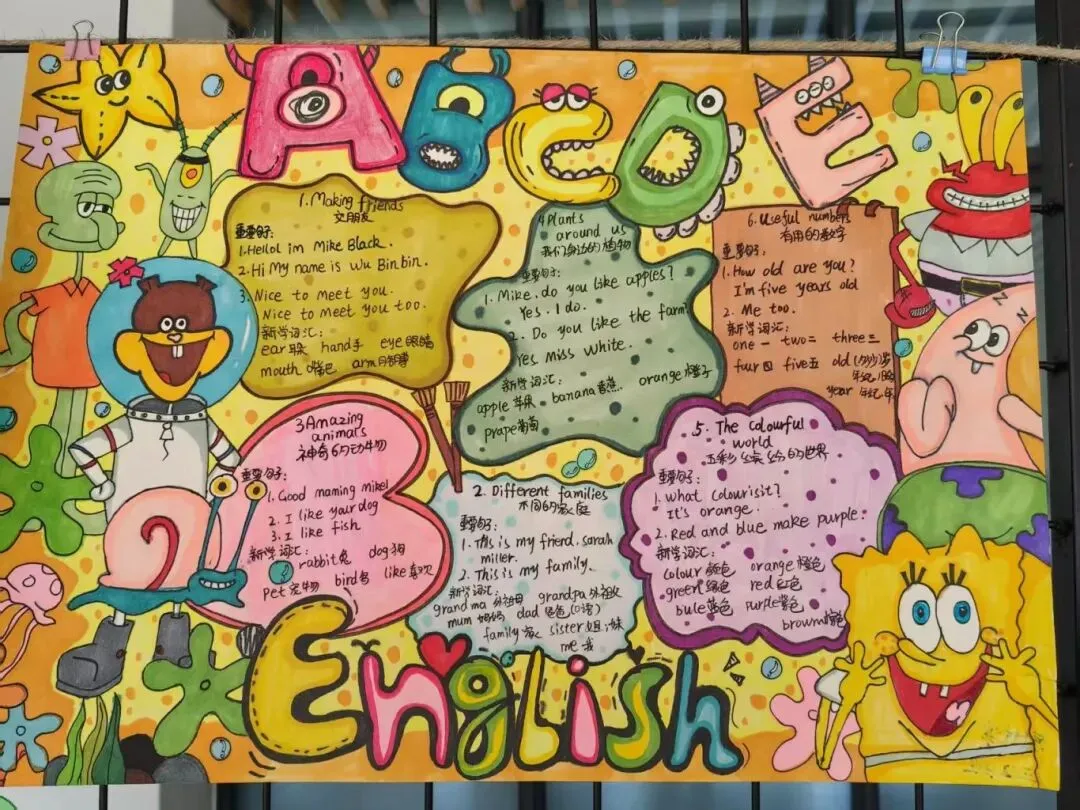 ABCDE
1. Making friends
交朋友
重要句子:
1. Hello! im Mike Black.
2. Hi My name is Wu Binbin.
3. Nice to meet you.
Nice to meet you too.
新学词汇:
ear耳朵 hand手 eye眼睛
mouth 嘴巴 arm
4 Plants
around us
我们身边的植物
重要句子:
1. Mike. do you like apples?
Yes. I do.
2. Do you like the farm?
Yes. miss white.
新学词汇:
apple 苹果 banana香蕉 orange橙子
prape葡萄
6. Useful numbers
有用的数字
重要句子:
1. How old are you?
I'm five years old
2. Me too.
新学词汇:
one一 two二 three三
fuur四 five五 old
year
3 Amazing
animals
神奇的动物
重要句子:
1. Good maming mike!
2. I like your dog
3. I like fish
新学词汇:
rabbit兔 dog狗
Pet宠物 bird鸟 like喜欢
2. Different families
不同的家庭
重要句子:
1. This is my friend. sarah
miller.
2. This is my family.
新学词汇:
grandma 外祖母 grandpa 外祖父
mum 妈妈 dad 爸爸(口语)
family 家 sister 姐;妹
me 我
5. The colourful
world
五彩缤纷的世界
重要句子:
1. What colourisit?
It's orange.
2. Red and blue make purple.
新学词汇:
colour 颜色 orange 橙色
green 绿色 red 红色
bule 蓝色 purple紫色
brown棕色
English